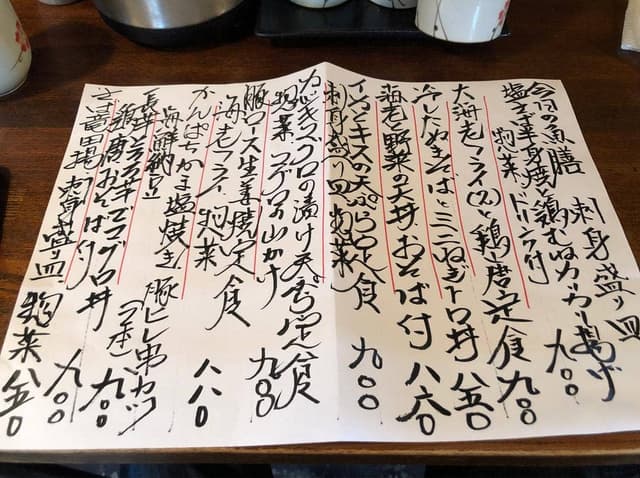 今日の魚膳 刺身盛り皿
塩さば半身焼と鶏むねカレー揚げ
惣菜、ドリンク付 九〇〇
大海老フライ(2)と鶏唐定食 九〇〇
冷したぬきそばとミニねぎトロ丼 八五〇
海老、野菜の天丼、おそば付 八六〇
イカとキスの天ぷら定食 九〇〇
刺身盛り皿 惣菜
カジキマグロの漬け天ぷら定食
惣菜 マグロの山かけ 九〇〇
豚ロース生姜焼定食 八八〇
海老フライ、惣菜
かんぱちかま塩焼き 豚ヒレ串カツ
海鮮納豆 (2本) 九〇〇
長芋とネギマグロ丼 九〇〇
鶏唐おそば付
さば竜田揚 刺身盛り皿 惣菜 八五〇